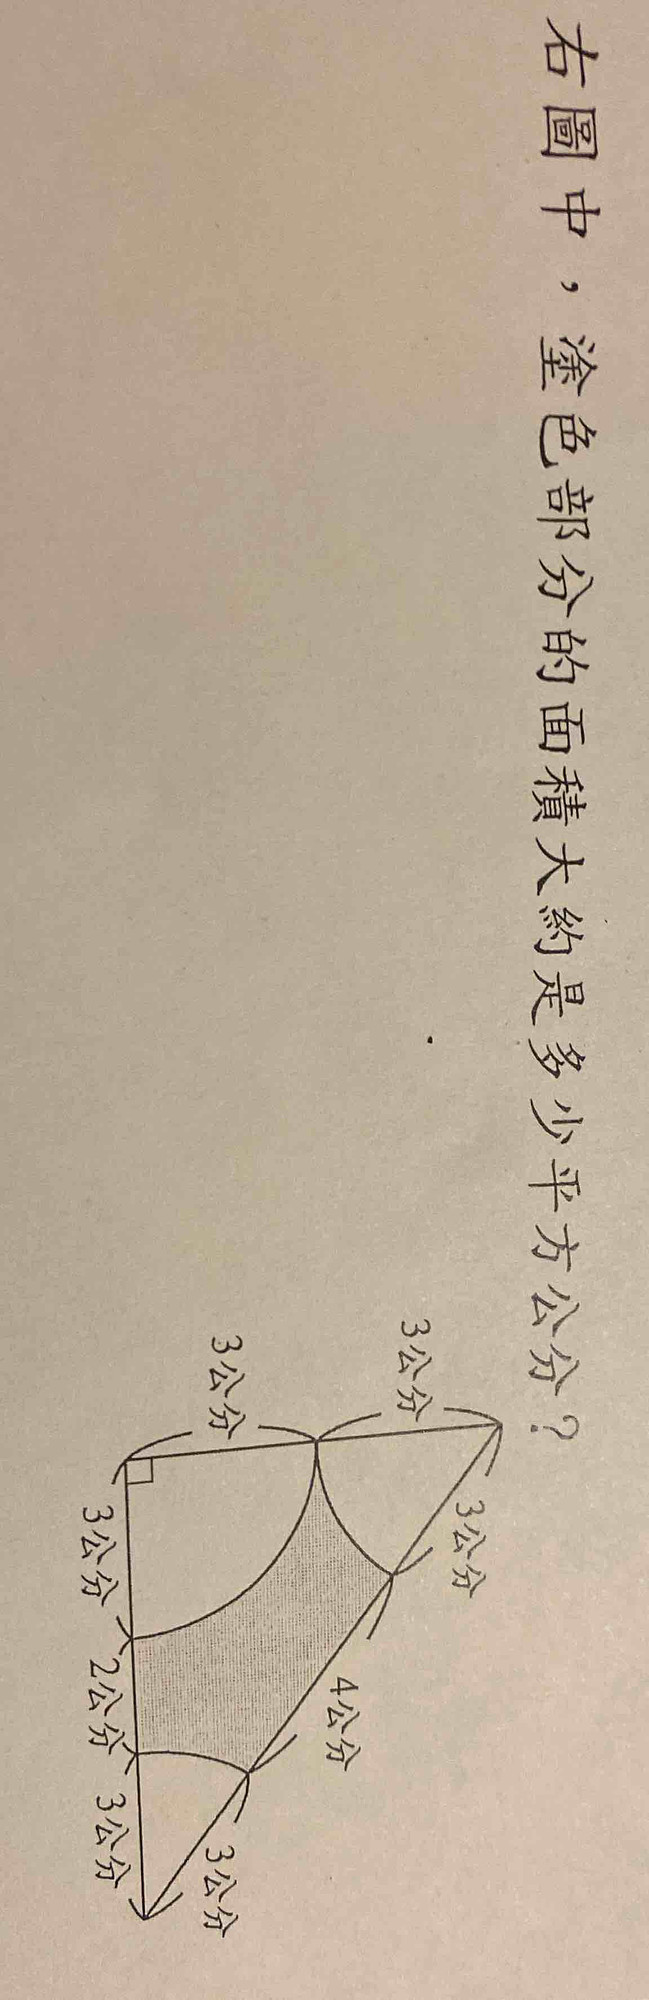 右圖中，塗色部分的面積大約是多少平方公分？
3公分
3公分
3公分
4公分
3公分
3公分
2公分
3公分